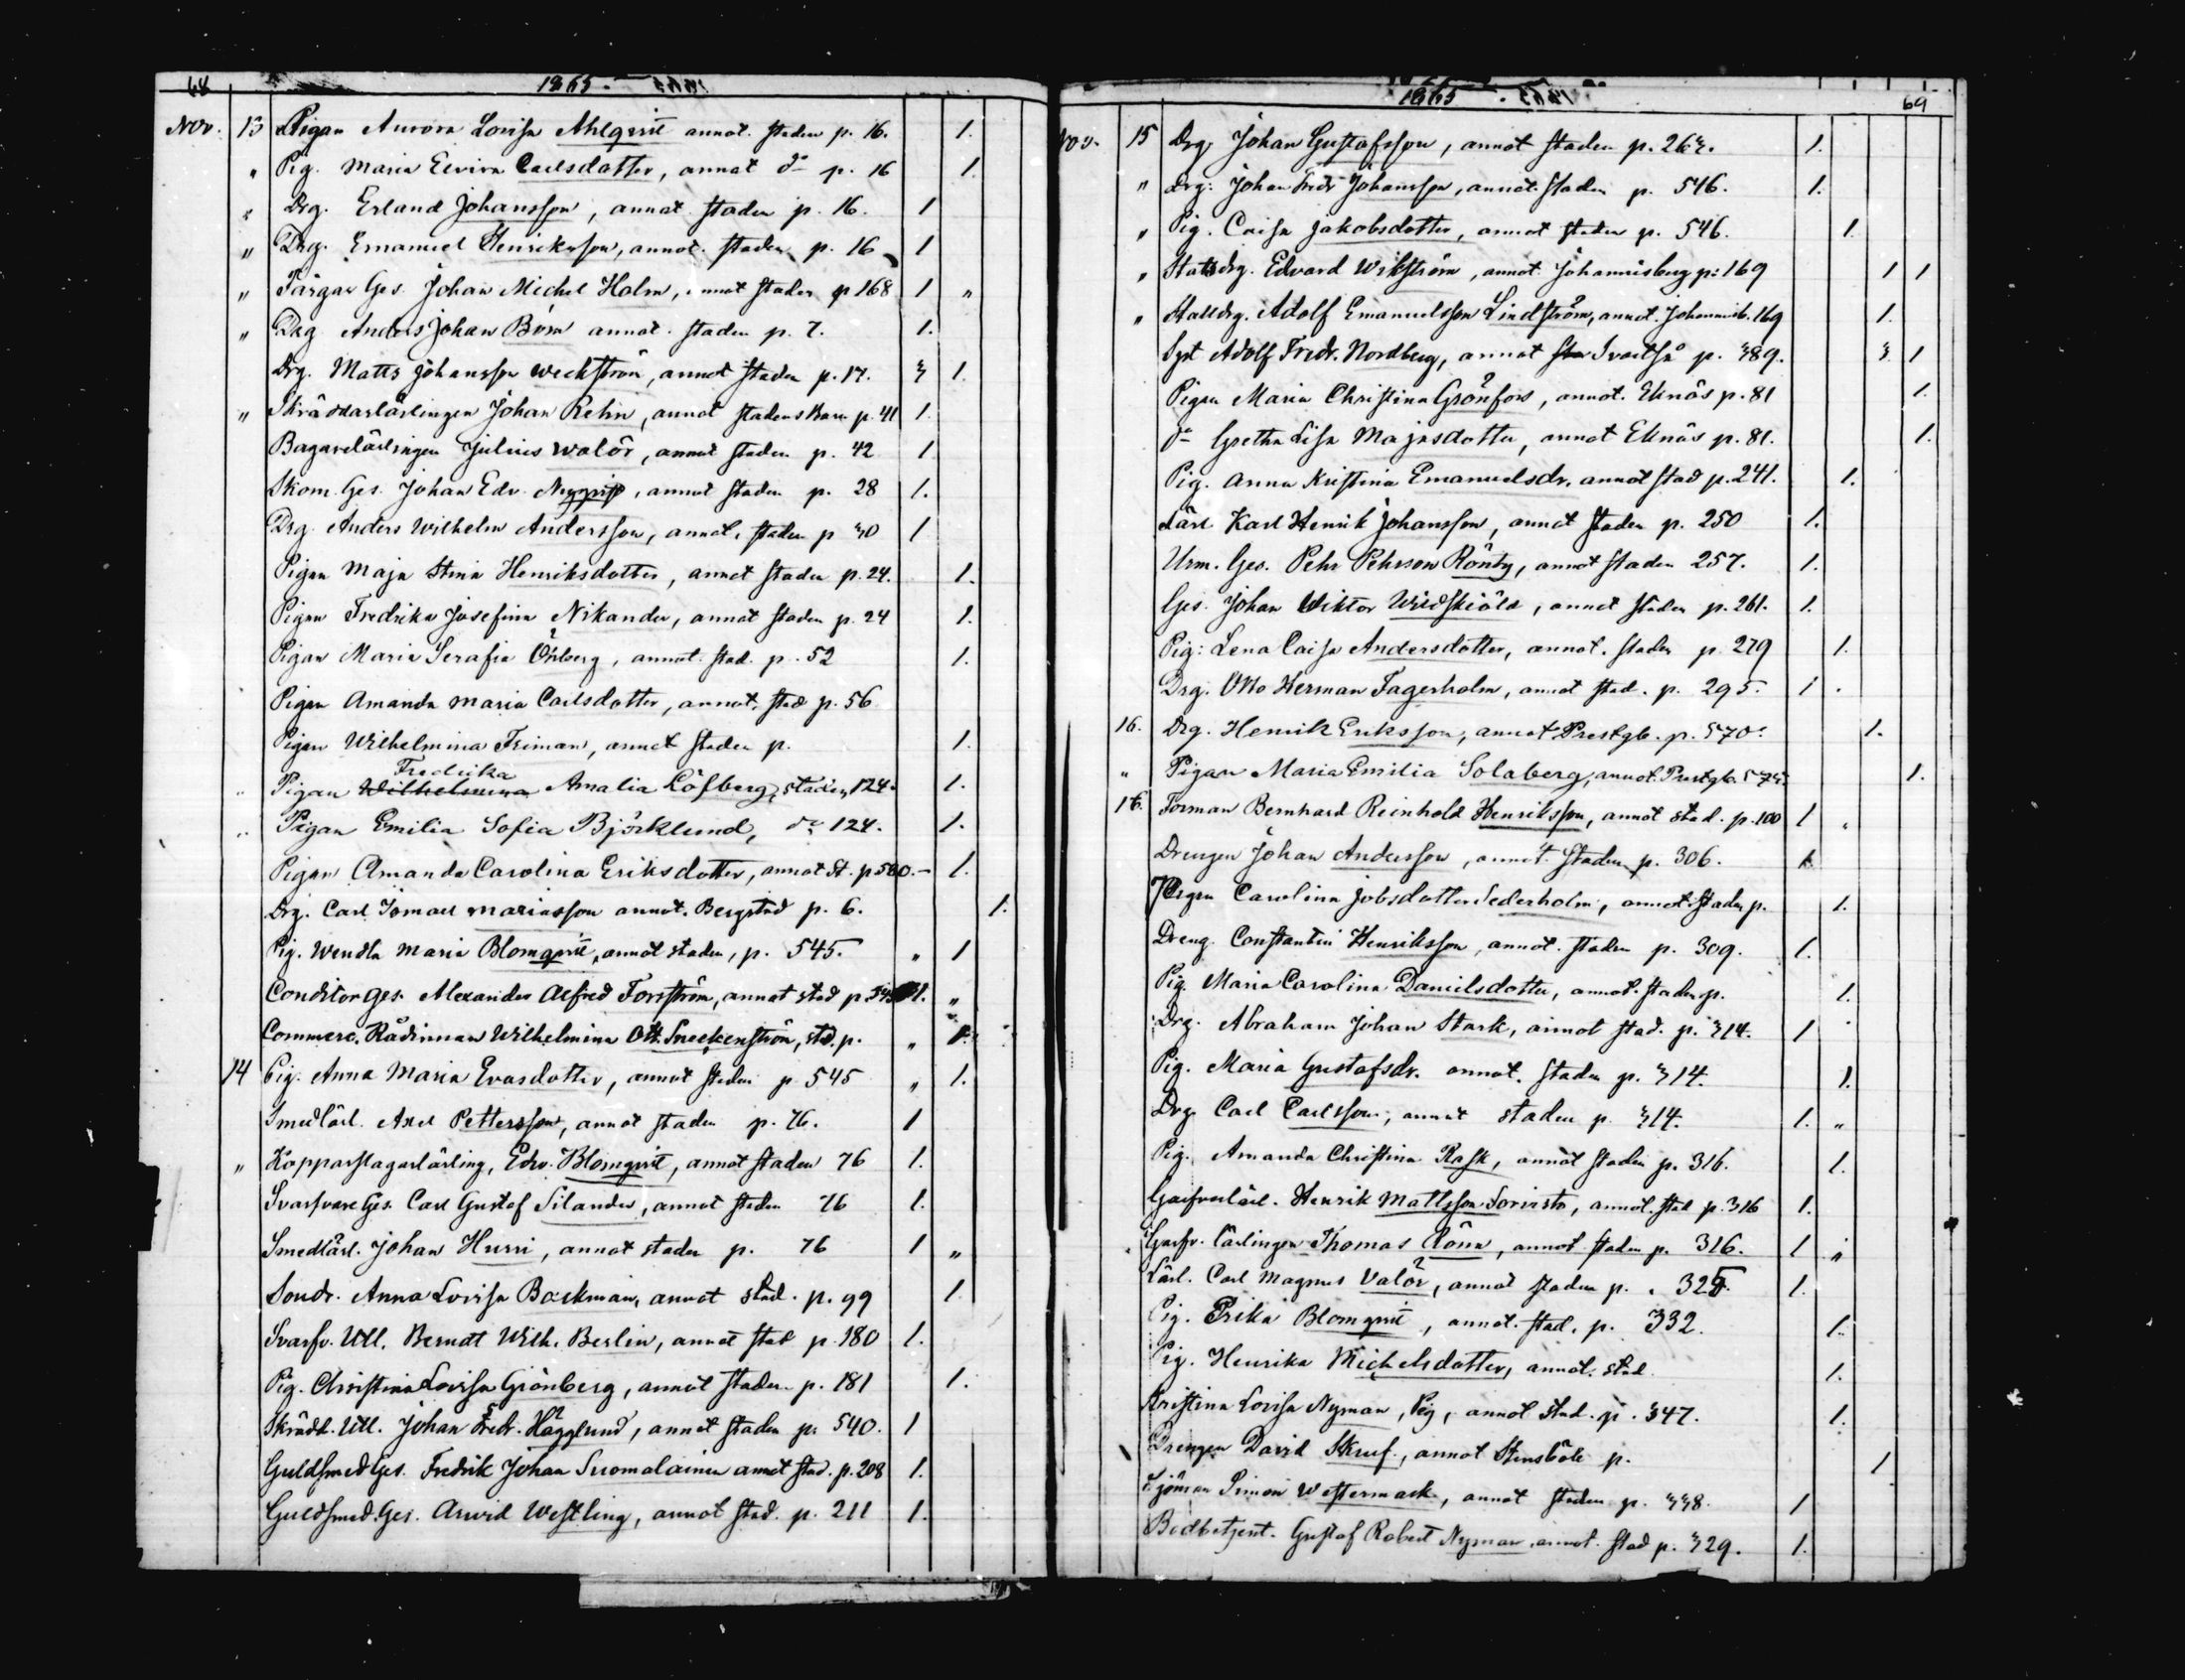 68
1865.
Nov. 13 Pigan Aurora Lovisa Ahlqvist annot. staden p. 16. 1.
" Pig. Maria Elvira Carlsdotter, annot do p. 16 1.
" Drg. Erland Johansson, annot staden p. 16. 1
" Drg. Emanuel Henriksson, annot. staden p. 16 1
" Färgar Ges. Johan Michel Holm, annot staden p 168 1 "
" Drg Anders Johan Böm annot. staden p. 7. 1.
Drg. Matts Johansson Weckström, annot staden p. 17. 1.
" Skräddarlärlingen Johan Rehn, annot stadens Barn p. 41 1.
Bagarelärlingen Julius Walör, annot staden p. 42 1
Skom. Ges. Johan Edv. Nyqvist, annot staden p. 28 1.
Drg. Anders Wilhelm Andersson, annot. staden p 30 1
Pigan Maja Stina Henriksdotter, annot staden p. 24. 1.
Pigan Fredrika Josefina Nikander, annot staden p. 24 1.
Pigan Maria Serafia Öhberg, annot. stad. p. 52 1.
Pigan Amanda Maria Carlsdotter, annot. stad p. 56
Pigan Wilhelmina Friman, annot staden p. 1.
Fredrika
Pigan Wilhelmina Amalia Löfberg, staden, 124. 1.
Pigan Emilia Sofia Björklund, do 124. 1.
Pigan Amanda Carolina Eriksdotter, annot St. p 500. – 1.
Drg. Carl Ismael Mariasson annot. Bergstad p. 6. 1.
Pig. Wendla Maria Blomqvist, annot staden, p. 545. " 1
Conditor Ges. Alexander Alfred Forsström, annot stad p 1. "
Commerc. Rådinnan Wilhelmina Ott. Sneckenström, std. p. " 1.
14 Pig. Anna Maria Evasdotter, annot staden p 545 " 1.
Smedlärl. Axel Pettersson, annot staden p. 76. 1
" Kopparslagarlärling, Edv. Blomqvist, annot staden 76 1.
Svarfvare Ges. Carl Gustaf Silander, annot staden 76 1.
Smedlärl. Johan Hurri, annot staden p. 76 1 "
Sondr. Anna Lovisa Backman, annot stad. p. 99 1.
Svarfv. Utl. Berndt Wilh. Berlin, annot stad p. 180 1.
Pig. Christina Lovisa Grönberg, annot staden p. 181 1.
Skrädd. Utl. Johan Fredr. Hägglund, annot staden p. 540. 1
Guldsmed Ges. Fredrik Johan Suomalainen annot stad. p. 208 1.
Guldsmed. Ges. Arvid Westling, annot stad. p. 211 1.
69
1865
Nov. 15 Drg. Johan Gustafsson, annot staden p. 263. 1.
" Drg: Johan Fredr Johansson, annot. staden p. 546. 1.
" Pig. Caisa Jakobsdotter, annot staden p. 546. 1.
" Statdrg. Edvard Wikström, annot. Johannisberg p: 169 1 1
" Stalldrg. Adolf Emanuelsson Lindström, annot. Johannisb. 169 1.
Adolf Fredr. Nordberg, annot Svartså p. 389. 1
Pigan Maria Christina Grönfors, annot. Eknäs p. 81 1.
do Gretha Lisa Majasdotter, annot Eknäs p. 81. 1.
Pig. Anna Kristina Emanuelsdr, annot stad p. 241. 1.
Lärl. Karl Henrik Johansson, annot staden p. 250 1.
Urm. Ges. Pehr Pehrson Rönty, annot staden 257. 1.
Ges. Johan Wiktor Widskiöld, annot staden p. 261. 1.
Pig: Lena Caisa Andersdotter, annot. staden p. 279 1.
Drg. Otto Herman Fagerholm, annot stad. p. 295. 1 .
16. Drg. Henrik Eriksson, annot. Prestgb. p. 570. 1.
" Pigan Maria Emilia Solaberg, annot. Prestgb. 1.
16. Forman Bernhard Reinhold Henriksson, annot stad. p. 100 1 "
Drengen Johan Andersson, annot. staden p. 306. 1.
Pigan Carolina Jobsdotter Sederholm, annot. staden p. 1.
Dreng. Constantin Henriksson, annot. staden p. 309. 1.
Pig. Maria Carolina Danielsdotter, annot. staden p. 1.
Drg. Abraham Johan Stark, annot stad. p. 314. 1
Pig. Maria Gustafsdr. annot. staden p. 314. 1.
Drg. Carl Carlsson, annot staden p. 314. 1. "
Pig. Amanda Christina Rask, annot staden p. 316. 1.
Garfvarlärl. Henrik Mattsson Sorvisto, annot. stad p. 316 1.
" Garfv. Lärlingen Thomas Rönn, annot staden p. 316. 1 "
Lärl. Carl Magnus Valör, annot staden p. 325. 1.
Pig. Erika Blomqvist, annot. stad. p. 332. 1.
Pig. Henrika Michelsdotter, annot. stad 1.
Kristina Lovisa Nyman, Pig, annot stad. p. 347. 1.
Drengen David Skruf, annot Stensböle p. 1
Sjöman Simon Westermark, annot staden p. 338. 1
Bodbetjent. Gustaf Robert Nyman annot. stad p. 329. 1.